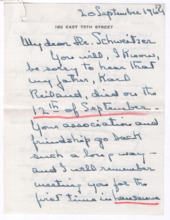 20 September 1962
152 EAST 75TH STREET
My dear Dr. Schweitzer
You will, I know,
be sorry to hear that
my father, Karl
Reiland, died on the
12th of September.
Your association and
friendship go back
such a long way –
and I well remember
meeting you for the
first time in